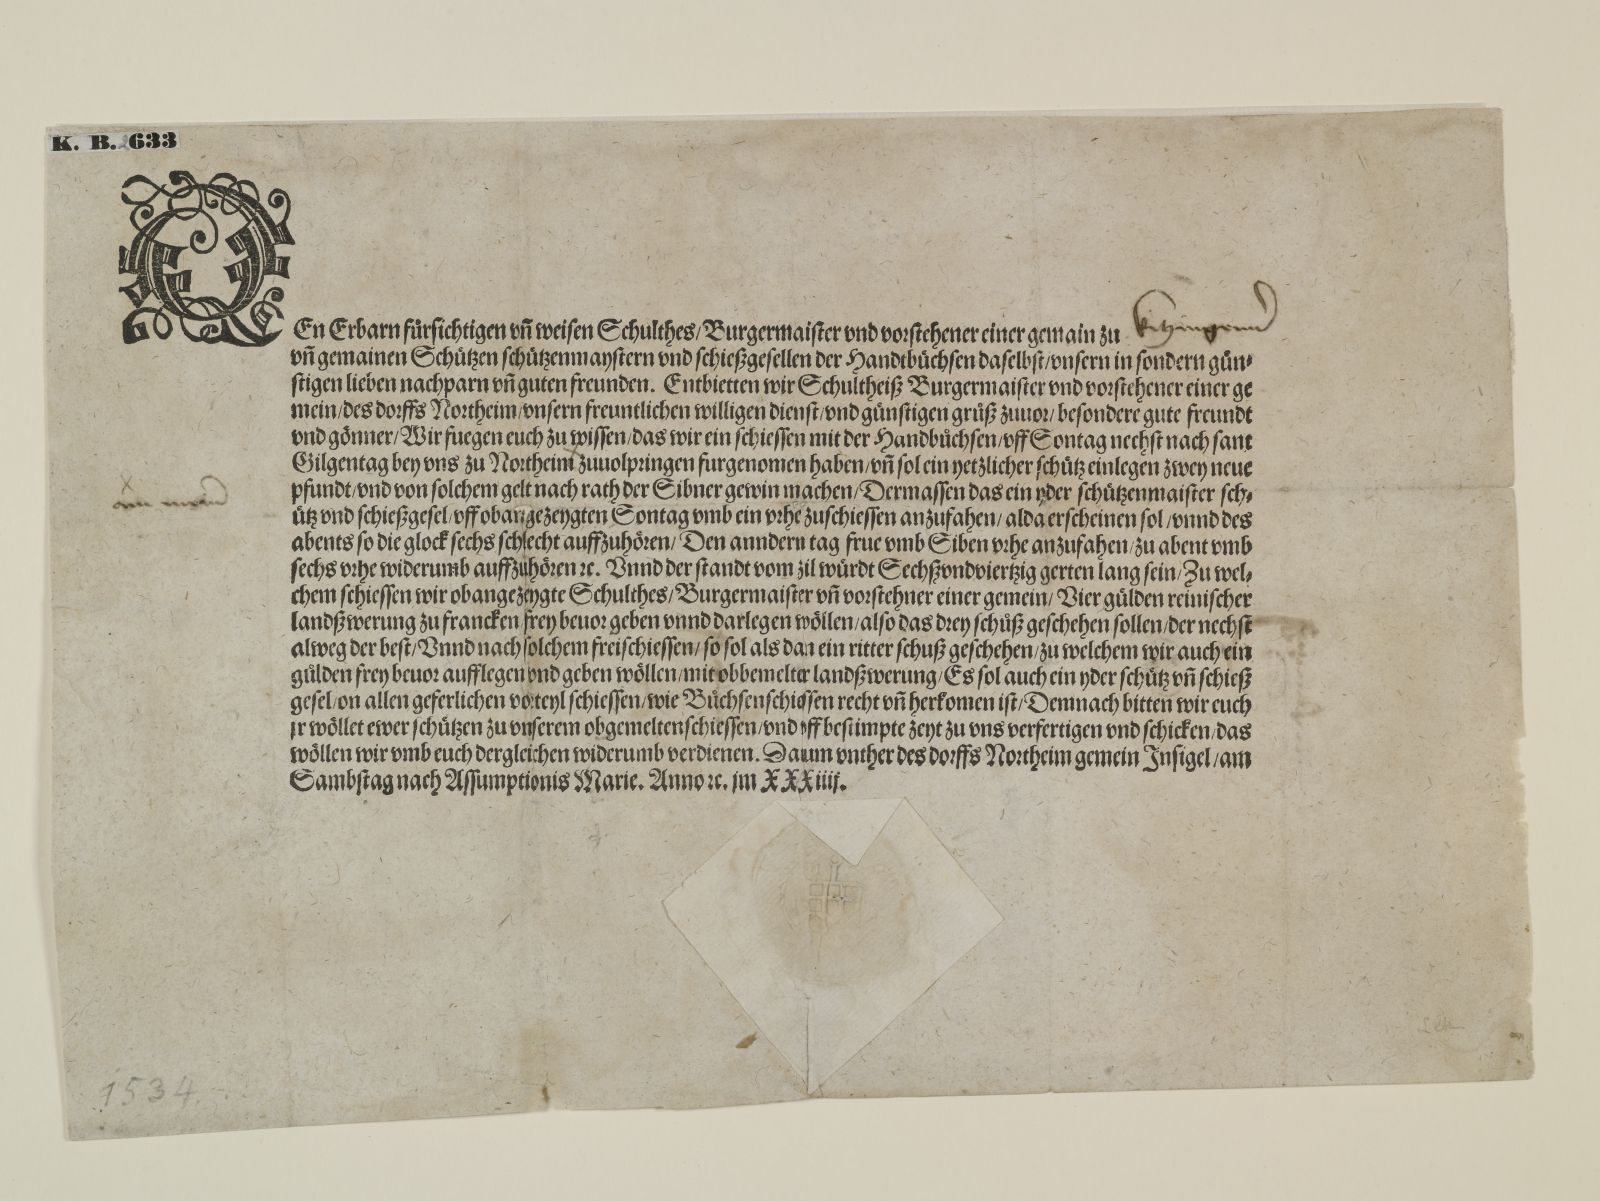 K. B. 633
DEn Erbarn fürsichtigen vñ weisen Schulthes/ Burgermaister vnd vorstehener einer gemain zu
vñ gemainen Schützen schützenmaystern vnd schießgesellen der Handtbüchsen daselbst/vnsern in sondern gün⸗
stigen lieben nachparn vñ guten freunden. Entbietten wir Schultheiß Burgermaister vnd vorstehener einer ge
mein/des dorffs Northeim/vnsern freuntlichen willigen dienst/vnd günstigen grüß zuuor/ besondere gute freundt
vnd gönner/Wir fuegen euch zu wissen/das wir ein schiessen mit der Handbüchsen/vff Sontag nechst nach sant
Gilgentag bey vns zu Northeim zuuolpringen furgenomen haben/vñ sol ein yetzlicher schütz einlegen zwey neue
pfundt/vnd von solchem gelt nach rath der Sibner gewin machen/Dermassen das ein yder schützenmaister sch⸗
ütz vnd schießgesel/vff obangezeygten Sontag vmb ein vrhe zuschiessen anzufahen/ alda erscheinen sol/vnnd des
abents so die glock sechs schlecht auffzuhören/ Den anndern tag frue vmb Siben vrhe anzufahen/zu abent vmb
sechs vrhe widerumb auffzuhören ꝛc. Vnnd der standt vom zil würdt Sechßvndviertzig gerten lang sein/Zu wel⸗
chem schiessen wir obangezeygte Schulthes/Burgermaister vñ vorstehner einer gemein/ Vier gülden reinischer
landßwerung zu francken frey beuor geben vnnd darlegen wöllen/also das drey schüß geschehen sollen/der nechst
alweg der best/Vnnd nach solchem freischiessen/ so sol als dan ein ritter schuß geschehen/zu welchem wir auch ein
gülden frey beuor aufflegen vnd geben wöllen/mit obbemelter landßwerung/Es sol auch ein yder schütz vñ schieß
gesel/on allen geferlichen vorteyl schiessen/wie Büchsenschiessen recht vñ herkomen ist/Demnach bitten wir euch
jr wöllet ewer schützen zu vnserem obgemelten schiessen/vnd vff bestimpte zeyt zu vns verfertigen vnd schicken/das
wöllen wir vmb euch dergleichen widerumb verdienen. Datum vnther des dorffs Northeim gemein Insigel/am
Sambstag nach Assumptionis Marie. Anno ꝛc. im XXXiiij.
1534.